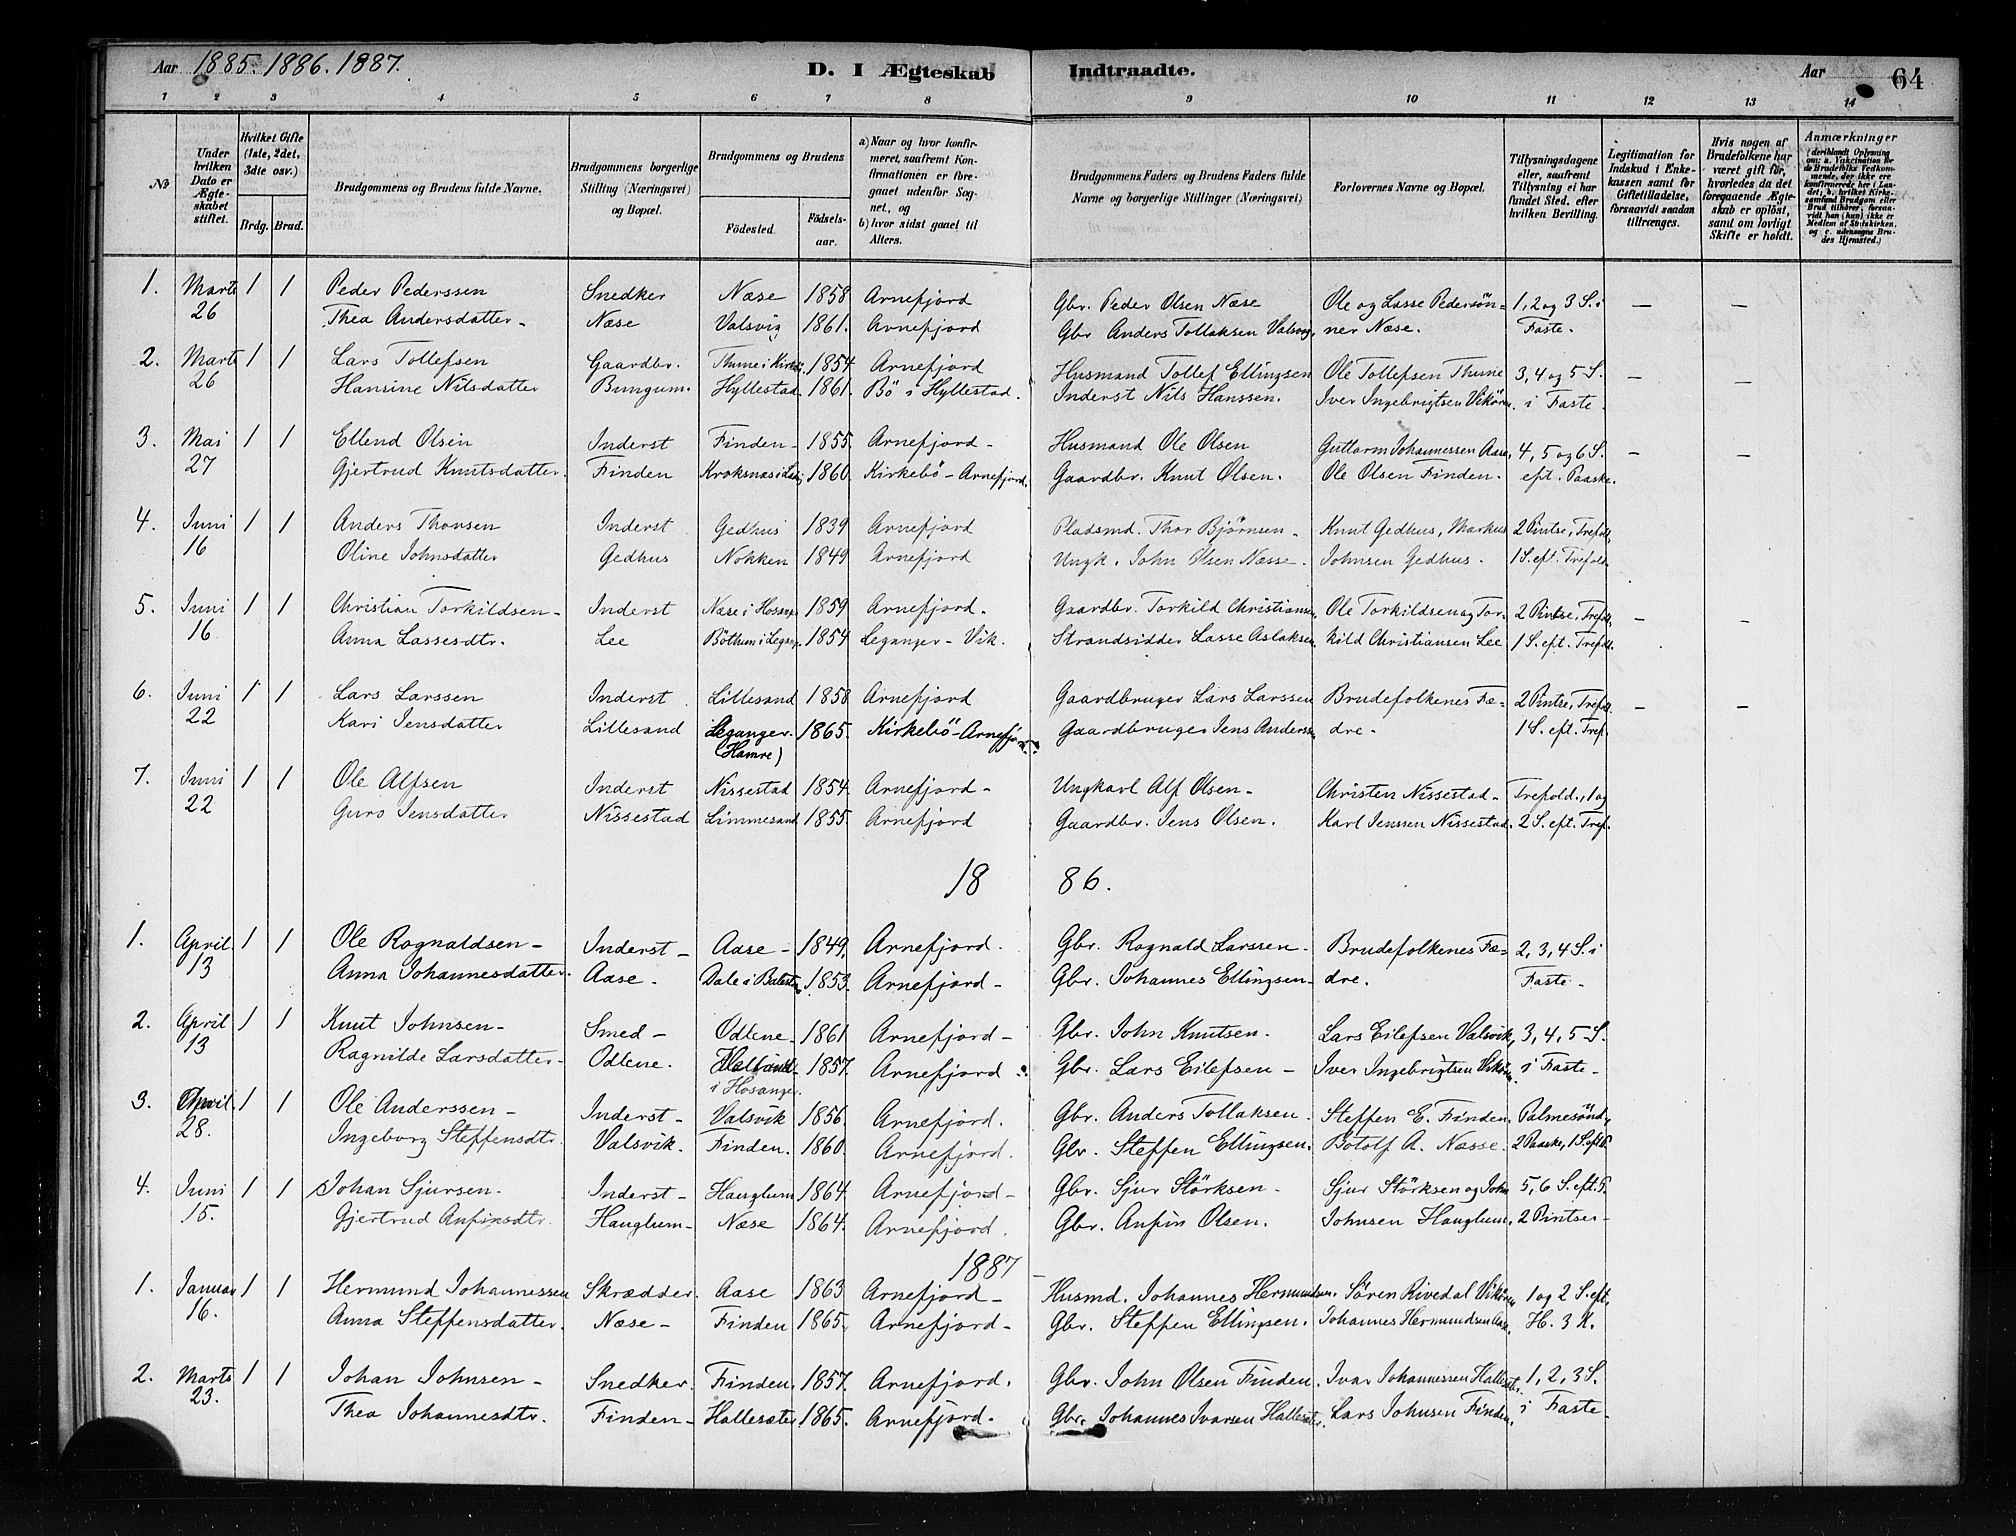 Aar 1885. 1886. 1887. D. I Ægteskab Indtraadte. Aar 64
1 2 3 4 5 6 7 8 9 10 11 12 13 14
№ Under hvilken Dato er Ægteskabet stiftet. Hvilket Gifte (1ste, 2det, 3die osv.) Brdg. Brud. Brudgommens og Brudens fulde Navne. Brudgommens borgerlige Stilling (Næringsvei) og Bopæl. Brudgommens og Brudens Födested. Födselsaar. a) Naar og hvor konfirmeret, saafremt Konfirmationen er foregaaet udenfor Sognet, og b) hvor sidst gaaet til Alters. Brudgommens Faders og Brudens Faders fulde Navne og borgerlige Stillinger (Næringsvei) Forlovernes Navne og Bopæl. Tillysningsdagene eller, saafremt Tillysning ei har fundet Sted, efter hvilken Bevilling. Legitimation for Indskud i Enkekassen samt for Giftetilladelse, forsaavidt saadan tiltrænges. Hvis nogen af Brudefolkene har været gift før, hvorledes da det foregaaende Ægteskab er oplöst, samt om lovligt Skifte er holdt. Anmærkninger
1. Marts 1 1 Peder Pederssen Snedker Næse 1858 Arnefjord Gbr. Peder Olsen Næse Ole og Lasse Pedersön- 1, 2 og 3 S. i — —
26 Thea Andersdatter - Næse Valsvig 1861. Arnefjord Gbr Anders Tollaksen Valsvig, ner Næse. Faste.
2. Marts 1 1 Lars Tollefsen Gaardbr. Thune i 1854. Arnefjord Husmand Tollef Ellingsen Ole Tollefsen Thune 3, 4 og 5 S. — —
26 Hansine Nilsdatter Bungum. Hyllestad. 1861. Bö i Hyllestad. Inderst Nils Hanssen. Iver Ingebrigtsen Vikören. i Faste.
3. Mai 1 1 Ellend Olsen Inderst Finden - 1855. Arnefjord - Husmand Ole Olsen Guttorm Johannessen Aase, 4, 5 og 6 S. — —
27 Gjertrud Knutsdatter. Finden 1860. Kirkebö - Arnefjord. Gaardbr. Knut Olsen. Ole Olsen Finden. eft. Paaske.
4. Juni 1 1 Anders Thorsen Inderst Gedhus 1839 Arnefjord Pladsmd. Thor Björnsen - Knut Gedhus, Markus 2 Pintse, Trefold,
16 Oline Johnsdatter Gedhus Nokken 1849 Arnefjord Ungk. John Olsen Næsse. Johnsen Gedhus. 1 S. eft. Trefold.
5. Juni 1 1 Christian Torkildsen - Inderst Næse i Hosang. 1859 Arnefjord. Gaardbr. Torkild Christiansen, Ole Torkildsen og Tor- 2 Pintse, Trefold, — —
16 Anna Lassesdtr. Lee Böthum i Legang. 1854 Leganger - Vik. Strandsidder Lasse Aslaksen kild Christiansen Lee 1 S. eft. Trefold.
6. Juni 1 1 Lars Larssen Inderst Lillesand 1858 Arnefjord Gaardbruger Lars Larssen Brudefolkenes Fæ- 2 Pintse, Trefold. — —
22 Kari Jensdatter Lillesand Leganger. 1865. Kirkebö - Arnefjord. Gaardbruger Jens Andersen dre. 1 S. eft. Tref.
(Hamre)
7. Juni 1 1 Ole Alfsen Inderst Nissestad 1854. Arnefjord - Ungkarl Alf Olsen - Christen Nissestad - Trefold., 1 og
22 Guro Jensdatter Nissestad Limmesand 1855. Arnefjord Gaardbr. Jens Olsen. Karl Jenssen Nissestad. 2 S. eft. Tref.
18 86.
1. April 1 1 Ole Ragnaldsen - Inderst - Aase - 1849. Arnefjord. Gbr. Ragnald Larssen. Brudefolkenes Fæ- 2, 3, 4 S. i
13 Anna Johannesdatter. Aase - Dale i Balestr. 1853. Arnefjord - Gbr. Johannes Ellingsen - dre. Faste -
2. April 1 1 Knut Johnsen - Smed - Odlene - 1861 Arnefjord - Gbr. John Knutsen. Lars Eilefsen Valsvik, 3, 4, 5 S.
13 Ragnilde Larsdatter - Odlene. 1857. Arnefjord Gbr. Lars Eilefsen - Iver Ingebrigtsen Vikören. i Faste -
i Hosanger.
3. April 1 1 Ole Anderssen - Inderst - Valsvik 1856. Arnefjord. Gbr. Anders Tollaksen. Steffen E. Finden, Palmesönd.,
28. Ingeborg Steffensdtr. Valsvik. Finden. 1860. Arnefjord. Gbr. Steffen Ellingsen. Botolf A. Næsse. 2 Paaske, 1 S. eft P.
4. Juni 1 1 Johan Sjursen - Inderst - Hauglum 1864. Arnefjord - Gbr. Sjur Störksen - Sjur Störksen og John 5, 6 S. eft P.
15. Gjertrud Anfinsdtr. Hauglum - Næse 1864. Arnefjord. Gbr. Anfin Olsen. Johnsen Hauglum. 2 Pintse -
1887
1. Januar 1 1 Hermund Johannessen Skrædder. Aase 1863 Arnefjord - Husmd. Johannes Hermundsen. Sören Rivedal Vikören 1 og 2 S. eft.
16. Anna Steffensdatter. Næse - Finden 1865. Arnefjord - Gbr. Steffen Ellingsen. Johannes Hermundsen Aase. H. 3 K.
2. Marts 1 1 Johan Johnsen - Snedker. Finden. 1857. Arnefjord. Gbr. John Olsen Finden. Ivar Johannessen Hallesæter. 1, 2, 3 S.
23. Thea Johannesdtr. Finden - Hallesæter 1865. Arnefjord. Gbr. Johannes Ivarsen Hallesæter. Lars Johnsen Finden. i Faste -